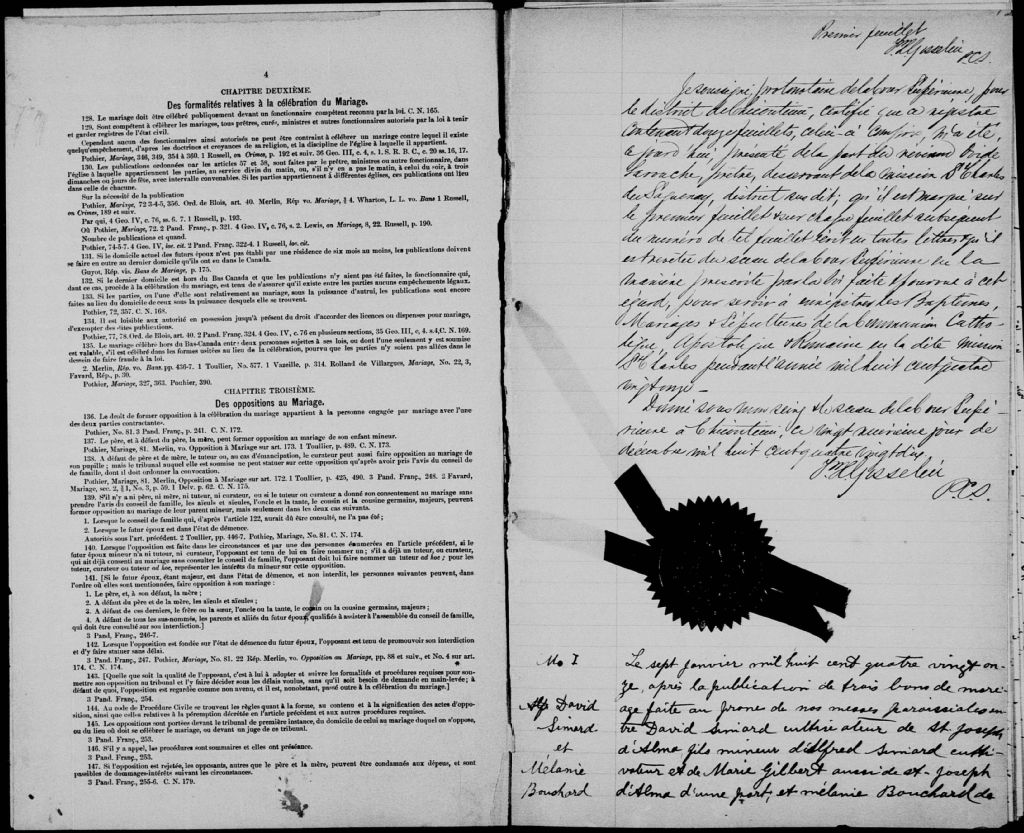 4
CHAPITRE DEUXIÈME.
Des formalités relatives à la célébration du Mariage.
128. Le mariage doit être célébré publiquement devant un fonctionnaire compétent reconnu par la loi. C. N. 165.
129. Sont compétents à célébrer les mariages, tous prêtres, curés, ministres et autres fonctionnaires autorisés par la loi à tenir
et garder registres de l'état civil.
Cependant aucun des fonctionnaires ainsi autorisés ne peut être contraint à célébrer un mariage contre lequel il existe
quelqu'empêchement, d'après les doctrines et croyances de sa religion, et la discipline de l'église à laquelle il appartient.
Pothier, Mariage, 346, 349, 354 à 360. 1 Russell, on Crimes, p. 192 et suiv. 36 Geo. III, c. 4, s. 1. S. R. B. C., c. 20 ss. 16, 17.
130. Les publications ordonnées par les articles 57 et 58, sont faites par le prêtre, ministre ou autre fonctionnaire, dans
l'église à laquelle appartiennent les parties, au service divin du matin, ou, s'il n'y en a pas le matin, à celui du soir, à trois
dimanches ou jours de fête, avec intervalle convenables. Si les parties appartiennent à différentes églises, ces publications ont lieu
dans celle de chacune.
Sur la nécessité de la publication
Pothier, Mariage, 72 3-4-5, 356. Ord. de Blois, art. 40. Merlin, Rép vo. Mariage, § 4. Wharton, L. L. vo. Bans 1 Russell,
on Crimes, 189 et suiv.
Par qui, 4 Geo. IV, c. 76, ss. 6. 7. 1 Russell, p. 193.
Où Pothier, Mariage, 72. 2 Pand. Franç., p. 321. 4 Geo. IV, c. 76, s. 2. Lewis, on Mariage, 8, 22. Russell, p. 190.
Nombre de publications et quand.
Pothier, 74-5-7. 4 Geo. IV, loc. cit. 2 Pand. Franç. 322-4. 1 Russell, loc. cit.
131. Si le domicile actuel des futurs époux n'est pas établi par une résidence de six mois au moins, les publications doivent
se faire en outre au dernier domicile qu'ils ont eu dans le Canada.
Guyot, Rép. vis. Bans de Mariage, p. 175.
132. Si le dernier domicile est hors du Bas Canada et que les publications n'y aient pas été faites, le fonctionnaire qui,
dant ce cas, procède à la célébration du mariage, est tenu de s'assurer qu'il existe entre les parties aucuns empêchements légaux.
133. Si les parties, ou l'une d'elle sont relativement au mariage, sous la puissance d'autrui, les publications sont encore
faites au lieu du domicile de ceux sous la puissance desquels elle se trouvent.
Pothier, 72, 357. C. N. 168.
134. Il est loisible aux autorité en possession jusqu'à présent du droit d'accorder des licences ou dispenses pour mariage,
d'exempter des dites publications.
Pothier, 77, 78. Ord. de Blois, art. 40. 2 Pand. Franç. 324. 4 Geo. IV, c. 76 en plusieurs sections, 35 Geo. III, c, 4. s.4, C. N. 169.
135. Le mariage célébré hors du Bas-Canada entre deux personnes sujettes à ses lois, ou dont l'une seulement y est soumise
est valable, s'il est célébré dans les formes usitées au lieu de la célébration, pourvu que les parties n'y soient pas allées dans le
dessein de faire fraude à la loi.
2. Merlin, Rép. vo. Bans. pp. 436-7. 1 Toullier, No. 577. 1 Vazeille, p. 314. Rolland de Villargues, Mariage, No. 22, 3,
Favard, Rép., p. 30.
Pothier, Mariage, 327, 363. Pouhier, 390.
CHAPITRE TROISIÈME.
Des oppositions au Mariage.
136. Le droit de former opposition à la célébration du mariage appartient à la personne engagée par mariage avec l'une
des deux parties contractantes.
Pothier, No. 81. 3 Pand. Franç., p. 241. C. N. 172.
137. Le père, et à défaut du père, la mère, peut former opposition au mariage de son enfant mineur.
Pothier, Mariage, 81. Merlin, vo. Opposition à Mariage sur art. 173. 1 Toullier, p. 489. C. N. 173.
138. A défaut de père et de mère, le tuteur ou, au cas d'émancipation, le curateur peut aussi faire opposition au mariage de
son pupille ; mais le tribunal auquel elle est soumise ne peut statuer sur cette opposition qu'après avoir pris l'avis du conseil de
de famille, dont il doit ordonner la convocation.
Pothier, Mariage, 81. Merlin, Opposition à Mariage sur art. 172. 1 Toullier, p. 425, 490. 3 Pand. Franç., 248. 2 Favard,
Mariage, sec. 2, § 1, No. 3, p. 59. 1 Delv. p. 62. C. N. 175.
139. S'il n'y a ni père, ni mère, ni tuteur, ni curateur, ou si le tuteur ou curateur a donné son consentement au mariage sans
prendre l'avis du conseil de famille, les aïeuls et aïeules, l'oncle et la tante, le cousin et la cousine germains, majeurs, peuvent
former opposition au mariage de leur parent mineur, mais seulement dans les deux cas suivants.
1. Lorsque le conseil de famille qui, d'après l'article 122, aurait dû être consulté, ne l'a pas été ;
2. Lorsque le futur époux est dans l'état de démence.
Autorités sous l'art. précédent. 2 Toullier, pp. 446-7. Pothier, Mariage, No. 81. C. N. 174.
140. Lorsque l'opposition est faite dans les circonstances et par une des personnes énumérées en l'article précédent, si le
futur époux mineur n'a ni tuteur, ni curateur, l'opposant est tenu de lui en faire nommer un ; s'il a déjà un tuteur, ou curateur,
qui ait déjà consenti au mariage sans consulter le conseil de famille, l'opposant doit lui faire nommer un tuteur ad hoc ; pour les
tuteur, curateur ou tuteur ad hoc, représenter les intérêts du mineur sur cette opposition.
141. [Si le futur époux, étant majeur, est dans l'état de démence, et non interdit, les personnes suivantes peuvent, dans
l'ordre où elles sont mentionnées, faire opposition à son mariage :
1. Le père, et, à son défaut, la mère ;
2. A défaut du père et de la mère, les aïeuls et aïeules ;
3. A défaut de ces derniers, le frère ou la sœur, l'oncle ou la tante, le cousin ou la cousine germains, majeurs ;
4. A défaut de tous les sus-nommés, les parents et alliés du futur époux, qualifiés à assister à l'assemblée du conseil de famille,
qui doit être consulté sur son interdiction.]
3 Pand. Franç., 246-7.
142. Lorsque l'opposition est fondée sur l'état de démence du futur époux, l'opposant est tenu de promouvoir son interdiction
et d'y faire statuer sans délai.
3 Pand. Franç., 247. Pothier, Mariage, No. 81. 22 Rép. Merlin, vo. Opposition au Mariage, pp. 88 et suiv., et No. 4 sur art.
174. C. N. 174.
143. [Quelle que soit la qualité de l'opposant, c'est à lui à adopter et suivre les formalités et procédures requises pour sou-
mettre son opposition au tribunal et l'y faire décider sous les délais voulus, sans qu'il soit besoin de demande en main-levée ; à
défaut de quoi, l'opposition est regardée comme non avenu, et il est, nonobstant, passé outre à la célébration du mariage.]
3 Pand. Franç., 254.
144. Au code de Procédure Civile se trouvent les règles quant à la forme, au contenu et à la signification des actes d'oppo-
sition, ainsi que celles relatives à la péremption décrétée en l'article précédent et aux autres procédures requises.
145. Les oppositions sont portées devant le tribunal de première instance, du domicile de celui au mariage duquel on s'oppose,
ou du lieu où doit se célébrer le mariage, ou devant un juge de ce tribunal.
3 Pand. Franç., 253.
146. S'il y a appel, les procédures sont sommaires et elles ont préséance.
3 Pand. Franç., 253.
147. Si l'opposition est rejetée, les opposants, autres que le père et la mère, peuvent être condamnés aux dépens, et sont
passibles de doumages-intérêts suivant les circonstances.
3 Pand. Franç., 255-6. C. N. 179.
Premier feuillet
Gosselin
P.C.S.
Je soussigné, protonotaire de la Cour Supérieure, pour
le district de Chicoutimi, certifie que ce régistre
contenant douze feuillets, celui-ci compris, m'a été,
ce jour d'hui, présenté de la part du révérend Ovide
Larouche, prêtre, desservant de la mission St Charles
du Saguenay, district susdit ; qu'il est marqué sur
le premier feuillet & sur chaque feuillet subséquent
du numéro de tel feuillet écrit en toutes lettres & qu'il
est revêtu du sceau de la Cour Supérieure en la
manière prescrite par la loi faite & pourvue à cet
égard, pour servir à enregistrer les Baptêmes,
Mariages & Sépultures de la Communion Catho-
lique, Apostolique & Romaine en la dite mission
St Charles pendant l'année mil huit cent quatre
vingt onze -
Donné sous mon seing & le sceau de la Cour Supé-
rieure à Chicoutimi, ce vingt neuvième jour de
décembre mil huit cent quatre vingt dix
Gosselin
P.C.S.
M. I
Alp David
Simard
et
Mélanie
Bouchard
Le sept janvier mil huit cent quatre vingt on-
ze, après la publication de trois bans de mari-
age faite au prone de nos messes paroissiales en-
tre David Simard cultivateur de St. Joseph
d'Alma fils mineur d'Alfred Simard culti-
vateur et de Marie Gilbert aussi de St-Joseph
d'Alma d'une part, et mélanie Bouchard de